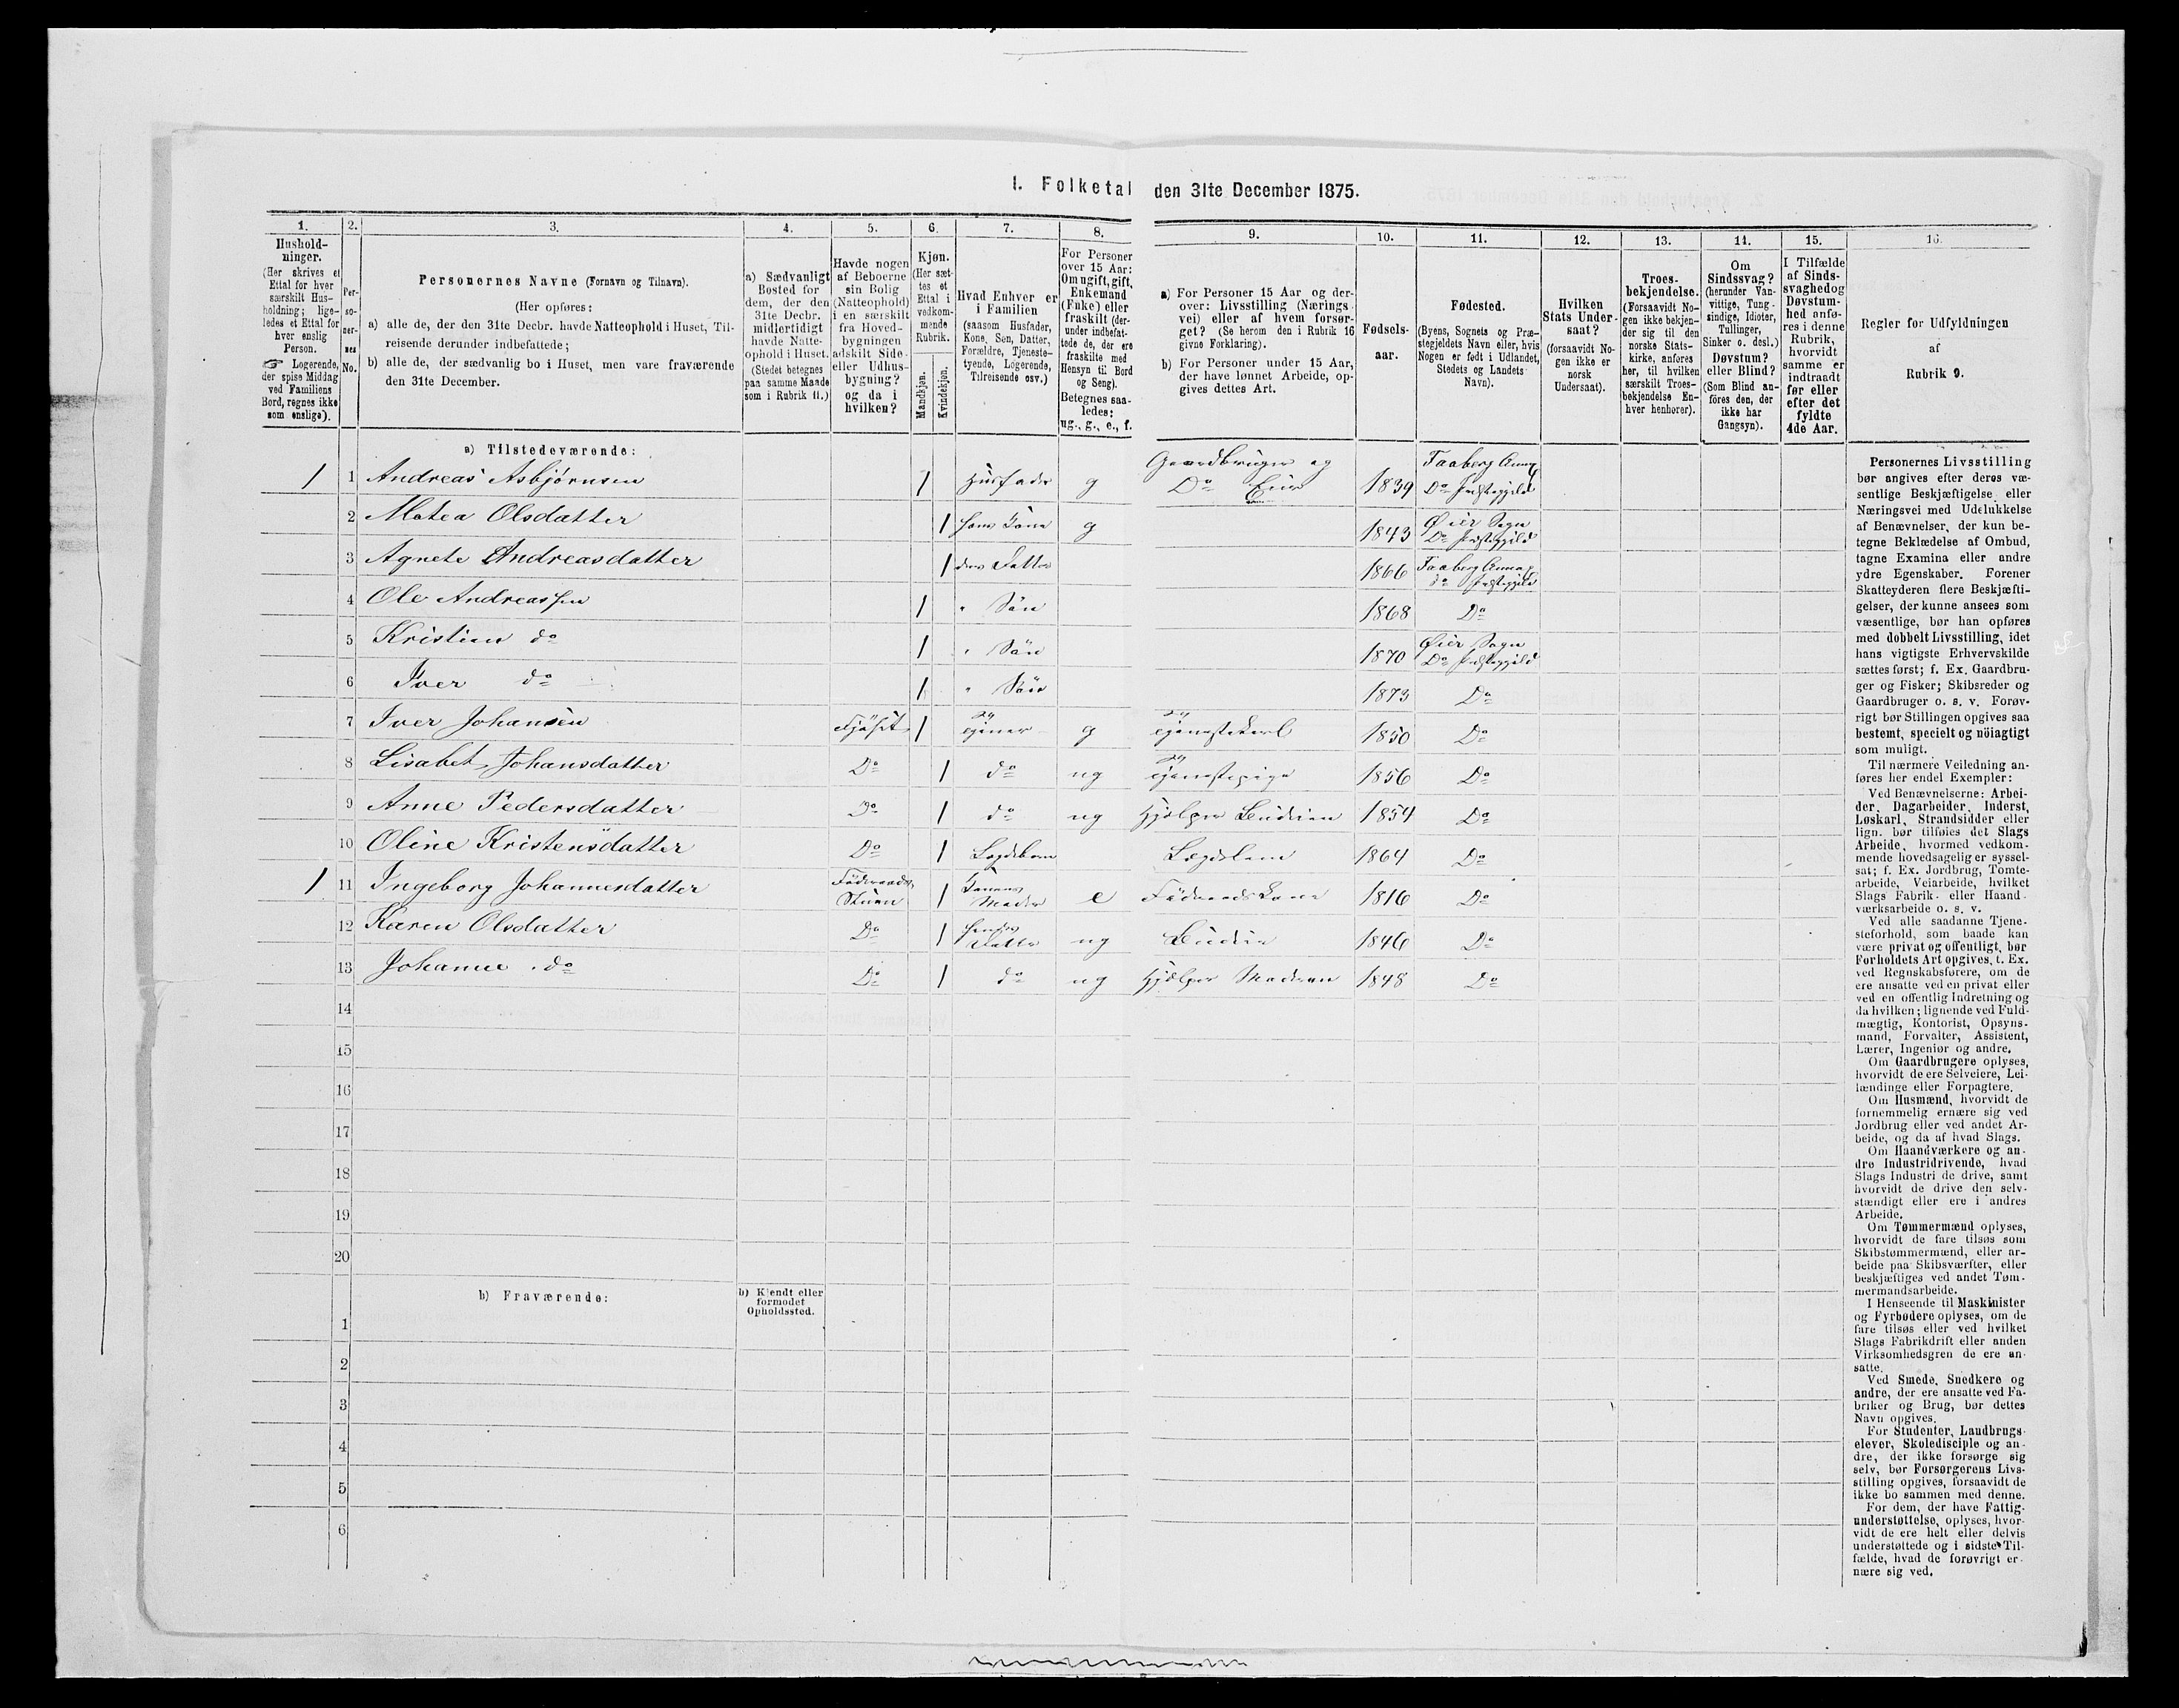 1. Folketal den 31te December 1875.
1.
2.
3.
4.
5.
6.
7.
8.
9.
10.
11.
12.
13.
14.
15.
16.
Hushold-
ninger.
(Her skrives et
Ettal for hver
særskilt Hus-
holdning; lige-
ledes et Ettal for
hver enslig
Person.
☞ Logerende,
der spise Middag
ved Familiens
Bord, regnes ikke
som enslige).
Per-
so-
ner-
nes
No.
Personernes Navne (Fornavn og Tilnavn).
(Her opføres:
a) alle de, der den 31te Decbr. havde Natteophold i Huset, Til-
reisende derunder indbefattede;
b) alle de, der sædvanlig bo i Huset, men vare fraværende
den 31te December.
a) Sædvanligt
Bosted for
dem, der den
31te Decbr.
midlertidigt
havde Natte-
ophold i Huset.
(Stedet betegnes
paa samme Maade
som i Rubrik 11.)
Havde nogen
af Beboerne
sin Bolig
(Natteophold)
i en særskilt
fra Hoved-
bygningen
adskilt Side-
eller Udhus-
bygning?
og da i
hvilken?
Kjøn.
(Her sæt-
tes et
Ettal i
vedkom-
mende
Rubrik.
Mandkjøn.
Kvindekjøn.
Hvad Enhver er
i Familien
(saasom Husfader,
Kone, Søn, Datter,
Forældre, Tjeneste-
tyende, Logerende,
Tilreisende osv.)
For Personer
over 15 Aar:
Om ugift, gift,
Enkemand
(Enke) eller
fraskilt (der-
under indbefat-
tede de, der ere
fraskilte med
Hensyn til Bord
og Seng).
Betegnes saa-
ledes:
ug., g., e., f.
a) For Personer 15 Aar og der-
over: Livsstilling (Nærings-
vei) eller af hvem forsør-
get? (Se herom den i Rubrik 16
givne Forklaring).
b) For Personer under 15 Aar,
der have lønnet Arbeide, op-
gives dettes Art.
Fødsels-
aar.
Fødested.
(Byens, Sognets og Præ-
stegjeldets Navn eller, hvis
Nogen er født i Udlandet,
Stedets og Landets
Navn).
Hvilken
Stats Under-
saat?
(forsaavidt No-
gen ikke er
norsk
Undersaat).
Troes-
bekjendelse.
(Forsaavidt No-
gen ikke bekjen-
der sig til den
norske Stats-
kirke, anføres
her, til hvilken
særskilt Troes-
bekjendelse En-
hver henhører).
Om
Sindssvag?
(herunder Van-
vittige, Tung-
sindige, Idioter,
Tullinger,
Sinker o. desl.)
Døvstum?
eller Blind?
(Som Blind an-
føres den, der
ikke har
Gangsyn).
I Tilfælde
af Sinds-
svaghed og
Døvstum-
hed anfø-
res i denne
Rubrik,
hvorvidt
samme er
indtraadt
før eller
efter det
fyldte
4de Aar.
Regler for Udfyldningen
af
Rubrik 9.
a) Tilstedeværende:
1 1 Andreas Asbjørnsen 1 Husfader g Gaardbruger og Do Eier 1839 Faaberg Annex Do Præstegjeld
2 Matea Olsdatter 1 hans Kone g 1843 Öier Sogn Do Præstegjeld
3 Agnete Andreasdatter 1 deres Datter 1866 Faaberg Annex do Præstegjeld
4 Ole Andreassen 1 " Sön 1868 Do
5 Kristian do 1 " Sön 1870 Öier Sogn Do Præstegjeld
6 Iver do 1 " Sön 1873 Do
7 Iver Johansen Fjöset 1 Tjener g Tjenestekarl 1850 Do
8 Lisabet Johansdatter Do 1 do ug Tjenestepige 1856 Do
9 Anne Pedersdatter Do 1 do ug Hjelper Budeien 1854 Do
10 Oline Kristensdatter Do 1 Lægdebarn Lægdslem 1864 Do
1 11 Ingeborg Johannesdatter Föderaads Stuen 1 Konens Moder e Föderaadskone 1816 Do
12 Karen Olsdatter Do 1 hendes Datter ug Budeie 1846 Do
13 Johanne do Do 1 do ug Hjælper Moderen 1848 Do
14
15
16
17
18
19
20
b) Fraværende:
b) Kjendt eller
formodet
Opholdssted.
1
2
3
4
5
6
Personernes Livsstilling
bør angives efter deres væ-
sentlige Beskjæftigelse eller
Næringsvei med Udelukkelse
af Benævnelser, der kun be-
tegne Beklædelse af Ombud,
tagne Examina eller andre
ydre Egenskaber. Forener
Skatteyderen flere Beskjæfti-
gelser, der kunne ansees som
væsentlige, bør han opføres
med dobbelt Livsstilling, idet
hans vigtigste Erhvervskilde
sættes først; f. Ex. Gaardbru-
ger og Fisker; Skibsreder og
Gaardbruger o. s. v. Forøv-
rigt bør Stillingen opgives saa
bestemt, specielt og nöiagtigt
som muligt.
Til nærmere Veiledning an-
føres her endel Exempler:
Ved Benævnelserne: Arbei-
der, Dagarbeider, Inderst,
Løskarl, Strandsidder eller
lign. bør tilføies det Slags
Arbeide, hvormed vedkom-
mende hovedsagelig er syssel-
sat; f. Ex. Jordbrug, Tomte-
arbeide, Veiarbeide, hvilket
Slags Fabrik- eller Haand-
værksarbeide o. s. v.
Ved alle saadanne Tjene-
steforhold, som baade kan
være privat og offentligt, bør
Forholdets Art opgives, t. Ex.
ved Regnskabsførere, om de
ere ansatte ved en privat eller
ved en offentlig Indretning og
da hvilken; lignende ved Fuld-
mægtig, Kontorist, Opsyns-
mand, Forvalter, Assistent,
Lærer, Ingeniør og andre.
Om Gaardbrugere oplyses,
hvorvidt de ere Selveiere, Lei-
lændinge eller Forpagtere.
Om Husmænd, hvorvidt de
fornemmelig ernære sig ved
Jordbrug eller ved andet Ar-
beide, og da af hvad Slags.
Om Haandværkere og an-
dre Industridrivende, hvad
Slags Industri de drive, samt
hvorvidt de drive den selv-
stændigt eller ere i andres
Arbeide.
Om Tømmermænd oplyses,
hvorvidt de fare tilsøs som
Skibstømmermænd, eller ar-
beide paa Skibsværfter, eller
beskjæftiges ved andet Tøm-
mermandsarbeide.
I Henseende til Maskinister
og Fyrbødere oplyses, om de
fare tilsøs eller ved hvilket
Slags Fabrikdrift eller anden
Virksomhedsgren de ere an-
satte.
Ved Smede, Snedkere og
andre, der ere ansatte ved Fa-
briker og Brug, bør dettes
Navn opgives.
For Studenter, Landbrugs-
elever, Skoledisciple og an-
dre, der ikke forsørge sig
selv, bør Forsørgerens Livs-
stilling opgives, forsaavidt de
ikke bo sammen med denne.
For dem, der have Fattig-
understøttelse, oplyses, hvor-
vidt de ere helt eller delvis
understøttede og i sidste Til-
fælde, hvad de forøvrigt er-
nære sig ved.